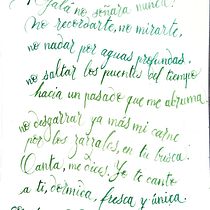 Ojalá no soñara nunca!
No recordarte, no mirarte,
no nadar por aguas profundas,
no saltar los puentes del tiempo
hacia un pasado que me abruma,
no desgarrar ya más mi carne
por los zarzales, en tu busca!
Canta, me dices. Yo te canto
a ti, dormida, fresca y única.